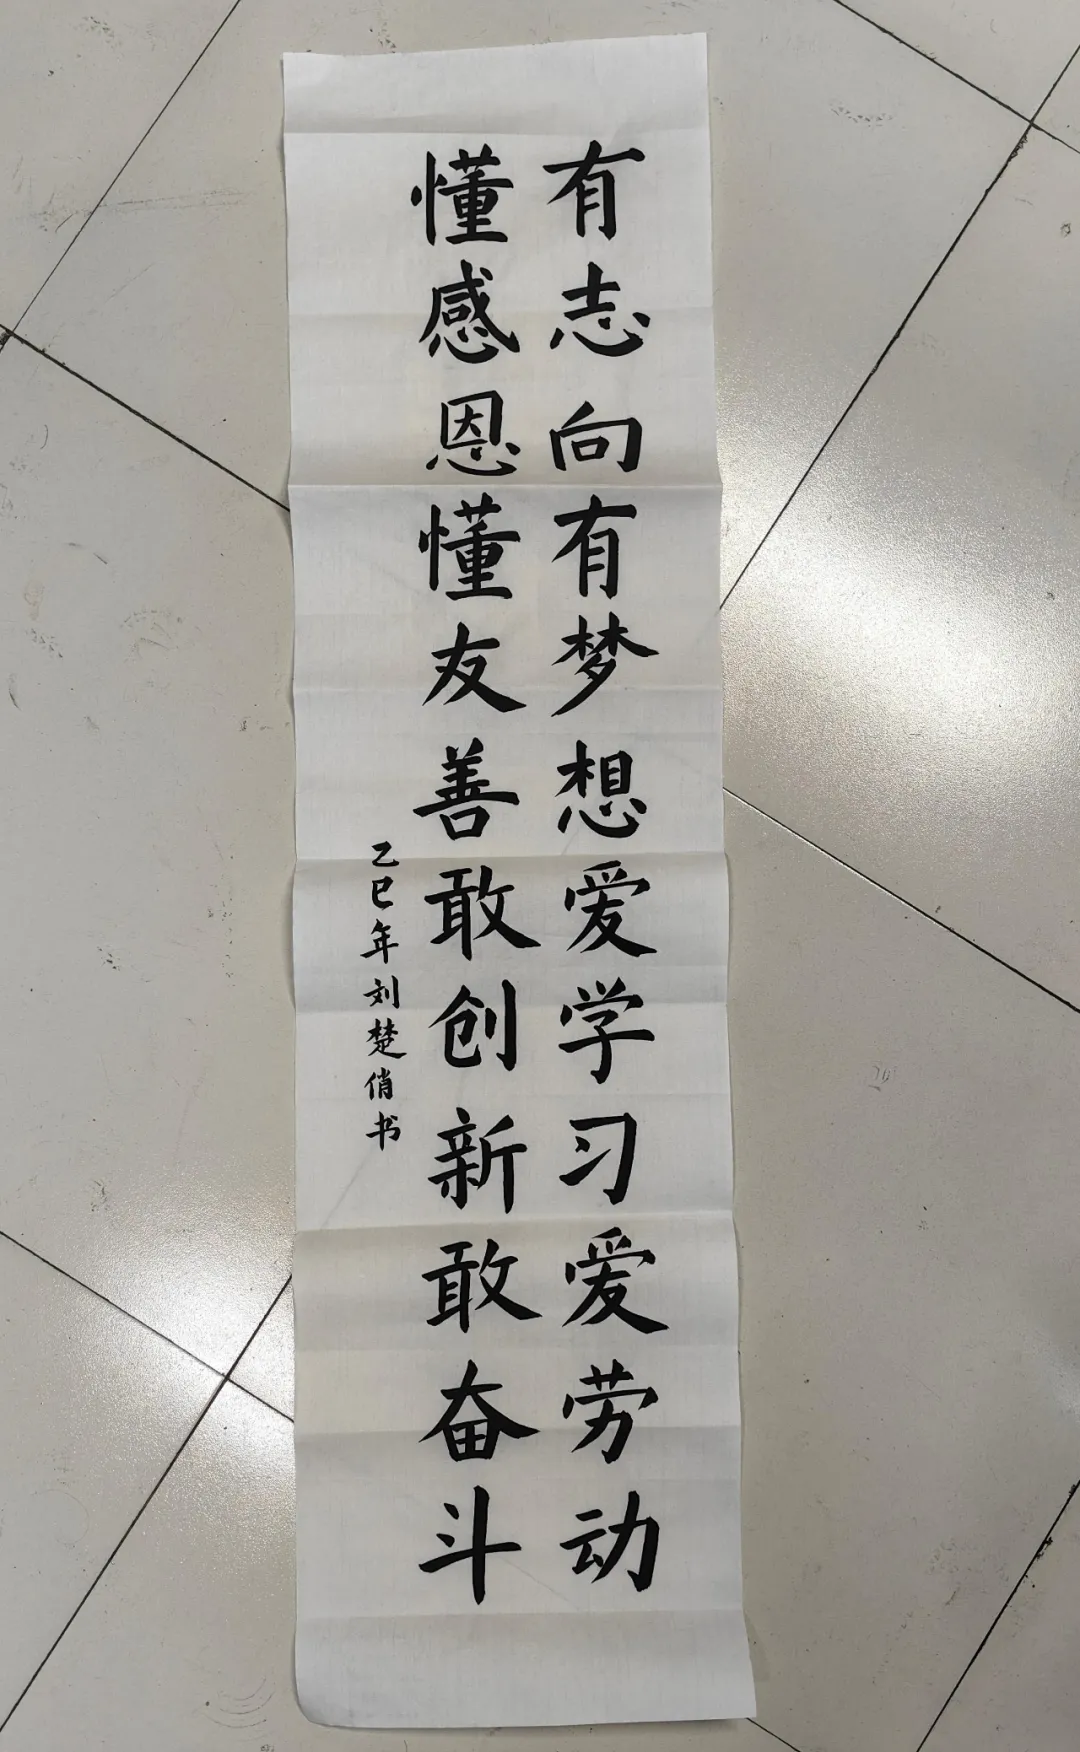 有志向有梦想爱学习爱劳动
懂感恩懂友善敢创新敢奋斗
乙巳年刘楚俏书